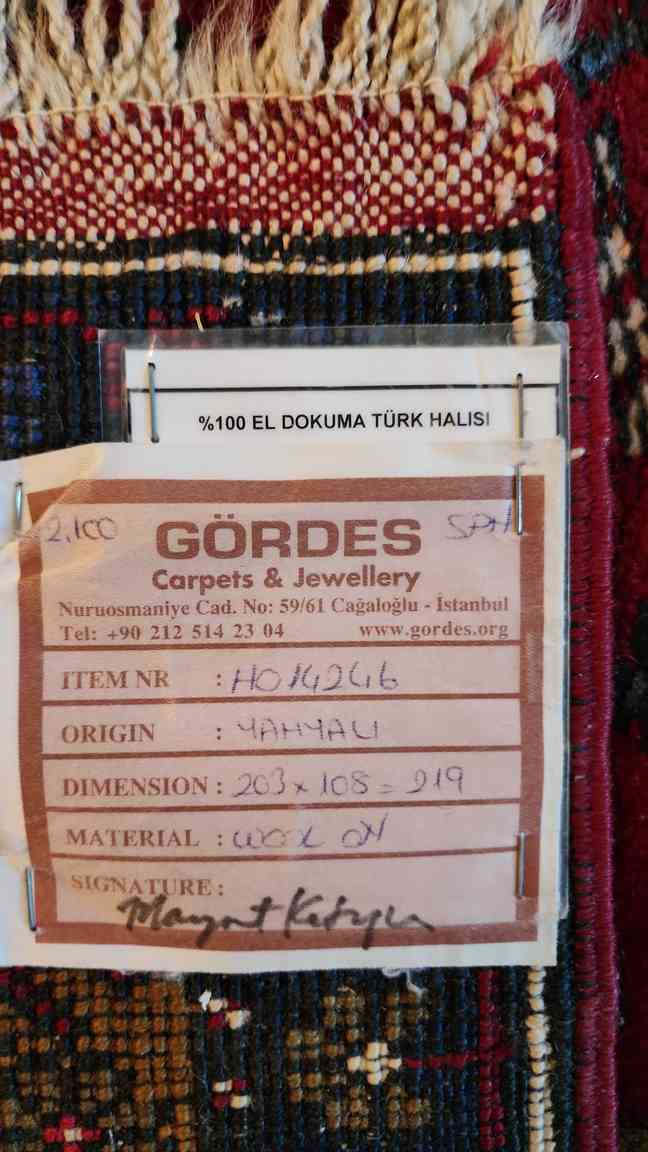 %100 EL DOKUMA TÜRK HALISI
2,100
GÖRDES
Carpets & Jewellery
Nuruosmaniye Cad. No: 59/61 Cağaloğlu - İstanbul
Tel: +90 212 514 23 04 www.gordes.org
ITEM NR : HO14246
ORIGIN : YAHYALI
DIMENSION : 203 x 108 = 219
MATERIAL : WOOL ON
SIGNATURE :